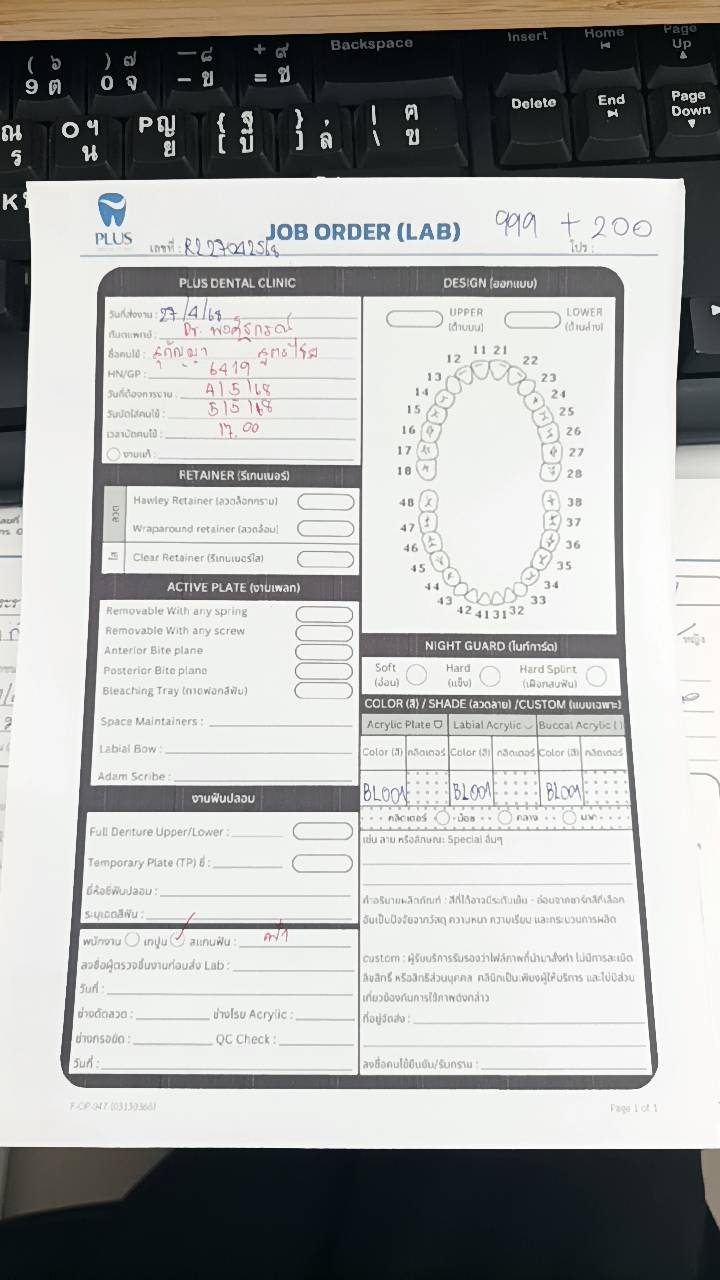 ( ๖
9 ต
) ๗
0 จ
— ๘
- ข
+ ๙
= ช
Backspace
Insert
Home
Page Up
ณ
ร
O ฯ
น
P ญ
ย
{ ฐ
[ บ
} ,
] ล
| ฅ
\ ฃ
Delete
End
Page Down
K
PLUS
JOB ORDER (LAB)
999 + 200
เลขที่ : RL27042568
โปร :
PLUS DENTAL CLINIC
วันที่ส่งงาน : 27/4/68
ทันตแพทย์ : Dr.
ชื่อคนไข้ :
HN/GP : 6419
วันที่ต้องการงาน : 4/5/68
วันนัดใส่คนไข้ : 5/5/68
เวลานัดคนไข้ : 17.00
งานแก้ :
RETAINER (รีเทนเนอร์)
ลวด
Hawley Retainer (ลวดล็อกกราม)
Wraparound retainer (ลวดล้อม)
ใส
Clear Retainer (รีเทนเนอร์ใส)
ACTIVE PLATE (งานเพลท)
Removable With any spring
Removable With any screw
Anterior Bite plane
Posterior Bite plane
Bleaching Tray (ถาดฟอกสีฟัน)
Space Maintainers :
Labial Bow :
Adam Scribe :
งานฟันปลอม
Full Denture Upper/Lower :
Temporary Plate (TP) ซี่ :
ยี่ห้อซี่ฟันปลอม :
ระบุเฉดสีฟัน :
พนักงาน เทปูน สแกนฟัน : ฟ้า
ลงชื่อผู้ตรวจชิ้นงานก่อนส่ง Lab :
วันที่ :
ช่างดัดลวด : ช่างโรย Acrylic :
ช่างกรอขัด : QC Check :
วันที่ :
DESIGN (ออกแบบ)
UPPER (ด้านบน)
LOWER (ด้านล่าง)
11 21
12 22
13 23
14 24
15 25
16 26
17 27
18 28
48 38
47 37
46 36
45 35
44 34
43 33
42 41 31 32
NIGHT GUARD (ไนท์การ์ด)
Soft (อ่อน)
Hard (แข็ง)
Hard Splint (เฝือกสบฟัน)
COLOR (สี) / SHADE (ลวดลาย) /CUSTOM (แบบเฉพาะ)
Acrylic Plate Labial Acrylic Buccal Acrylic ( )
Color (สี) กลิตเตอร์ Color (สี) กลิตเตอร์ Color (สี) กลิตเตอร์
BL001 BL001 BL001
กลิตเตอร์ น้อย กลาง มาก
เช่น ลาย หรือลักษณะ Special อื่นๆ
คำอธิบายผลิตภัณฑ์ : สีที่ได้อาจมีระดับเข้ม - อ่อนจากชาร์ทสีที่เลือก
อันเป็นปัจจัยจากวัสดุ ความหนา ความเรียบ และกระบวนการผลิต
custom : ผู้รับบริการรับรองว่าไฟล์ภาพที่นำมาสั่งทำ ไม่มีการละเมิด
ลิขสิทธิ์ หรือสิทธิส่วนบุคคล คลินิกเป็นเพียงผู้ให้บริการ และไม่มีส่วน
เกี่ยวข้องกับการใช้ภาพดังกล่าว
ที่อยู่จัดส่ง :
ลงชื่อคนไข้ยืนยัน/รับทราบ :
Page 1 of 1